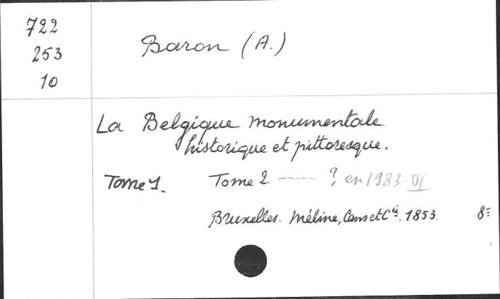 722
253
10
Baron (A.)
La Belgique monumentale
historique et pittoresque.
Tome 1. Tome 2 — ? en 1983 VI
Bruxelles. Méline, Cans et Cie. 1853. 8=